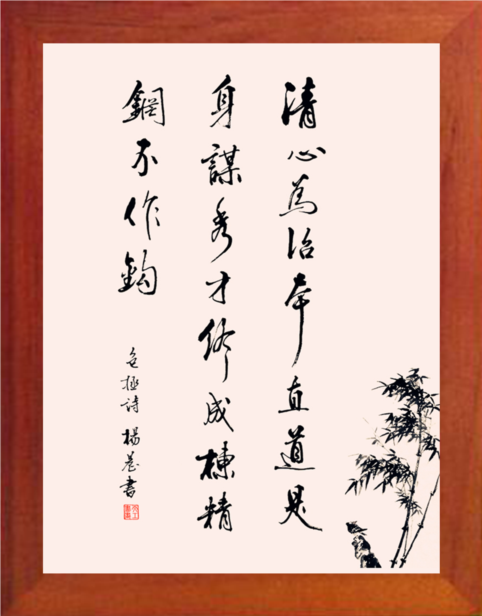 清心為治本直道是
身謀秀才終成棟精
鋼不作鈎
包極詩 楊書